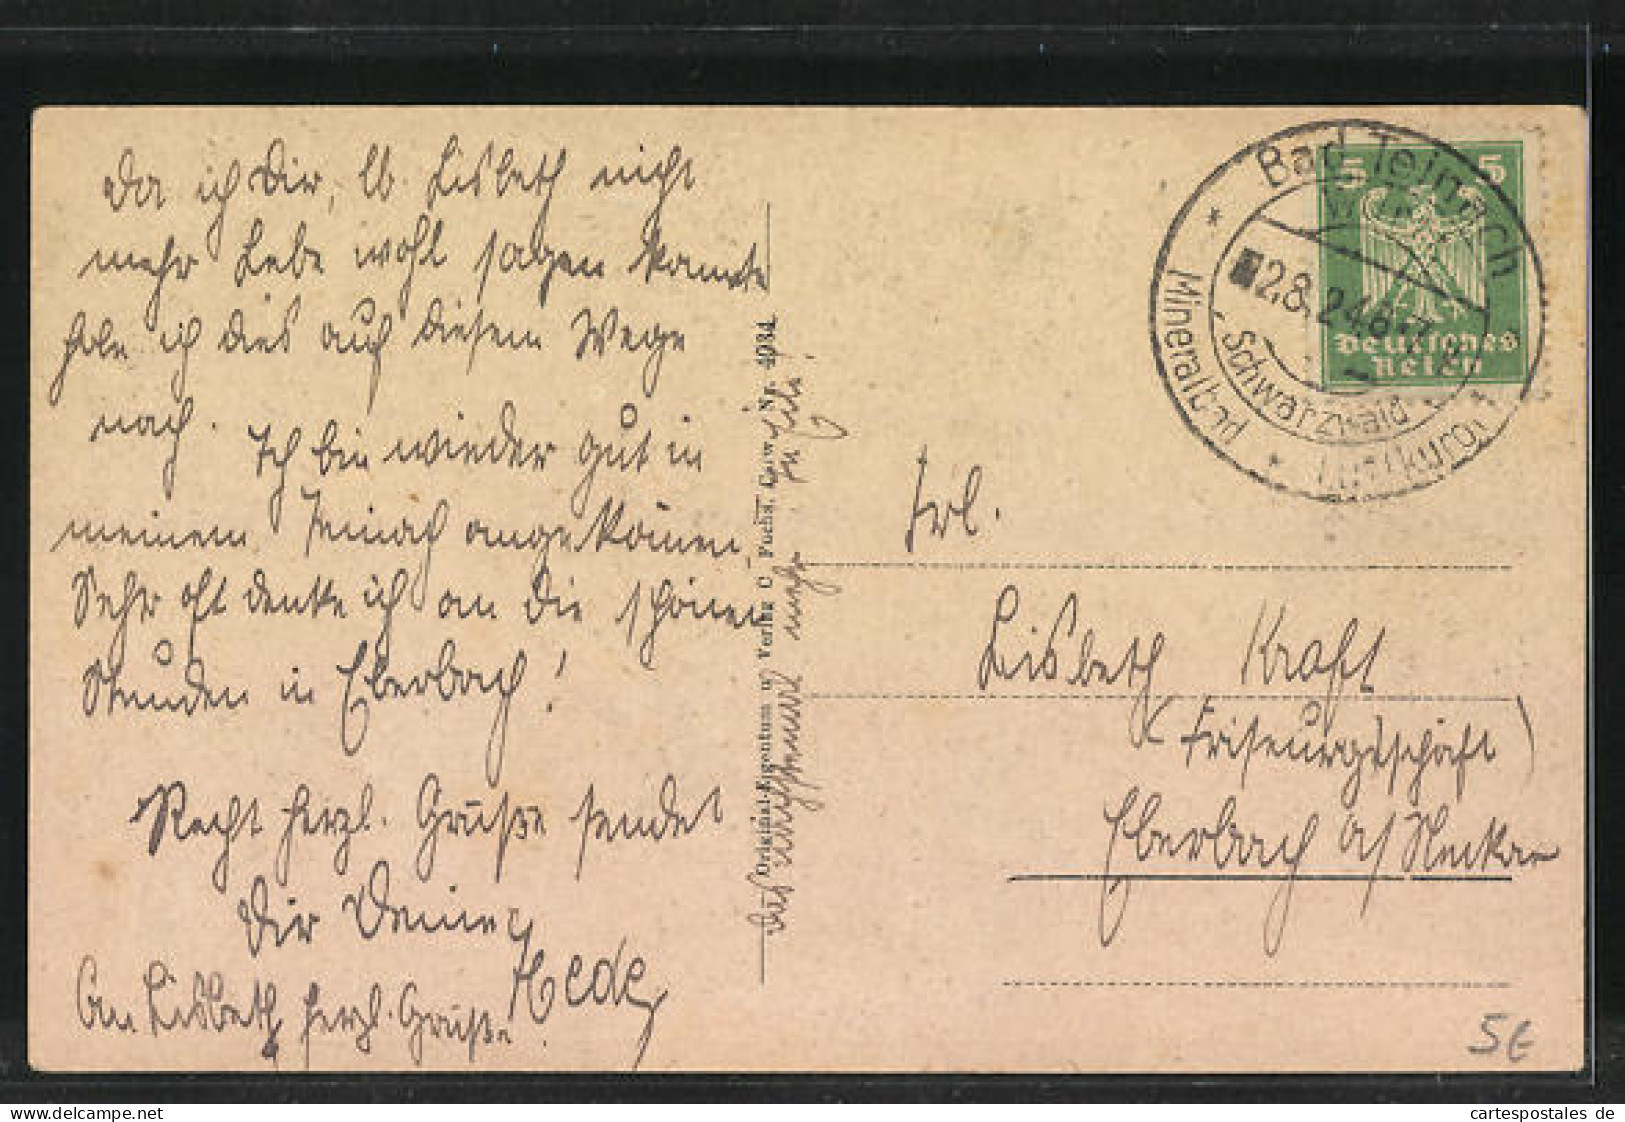 Da ich Dir, lb. Lisbeth nicht
mehr Lebe wohl sagen konnte
hole ich dies auf diesem Wege
nach. Ich bin wieder gut in
meinem Teinach angekom̄en
Sehr oft denke ich an die schönen
Stunden in Eberbach!
Recht herzl. Grüße sendet
Dir Deine
Hede
An Lisbeth herzl. Grüße.
Original-Eigentum u. Verlag C. Fuchs, Calw. Nr. 4934
mehr zu
Bad Teinach
Württ
2.8.24 6-7 N
Schwarzwald
* Mineralbad * Luftkurort
5 5
Deutsches
Reich
Frl.
Lisbeth Kraft
(Friseurgeschäft)
Eberbach a/Neckar
5€
cartespostales de